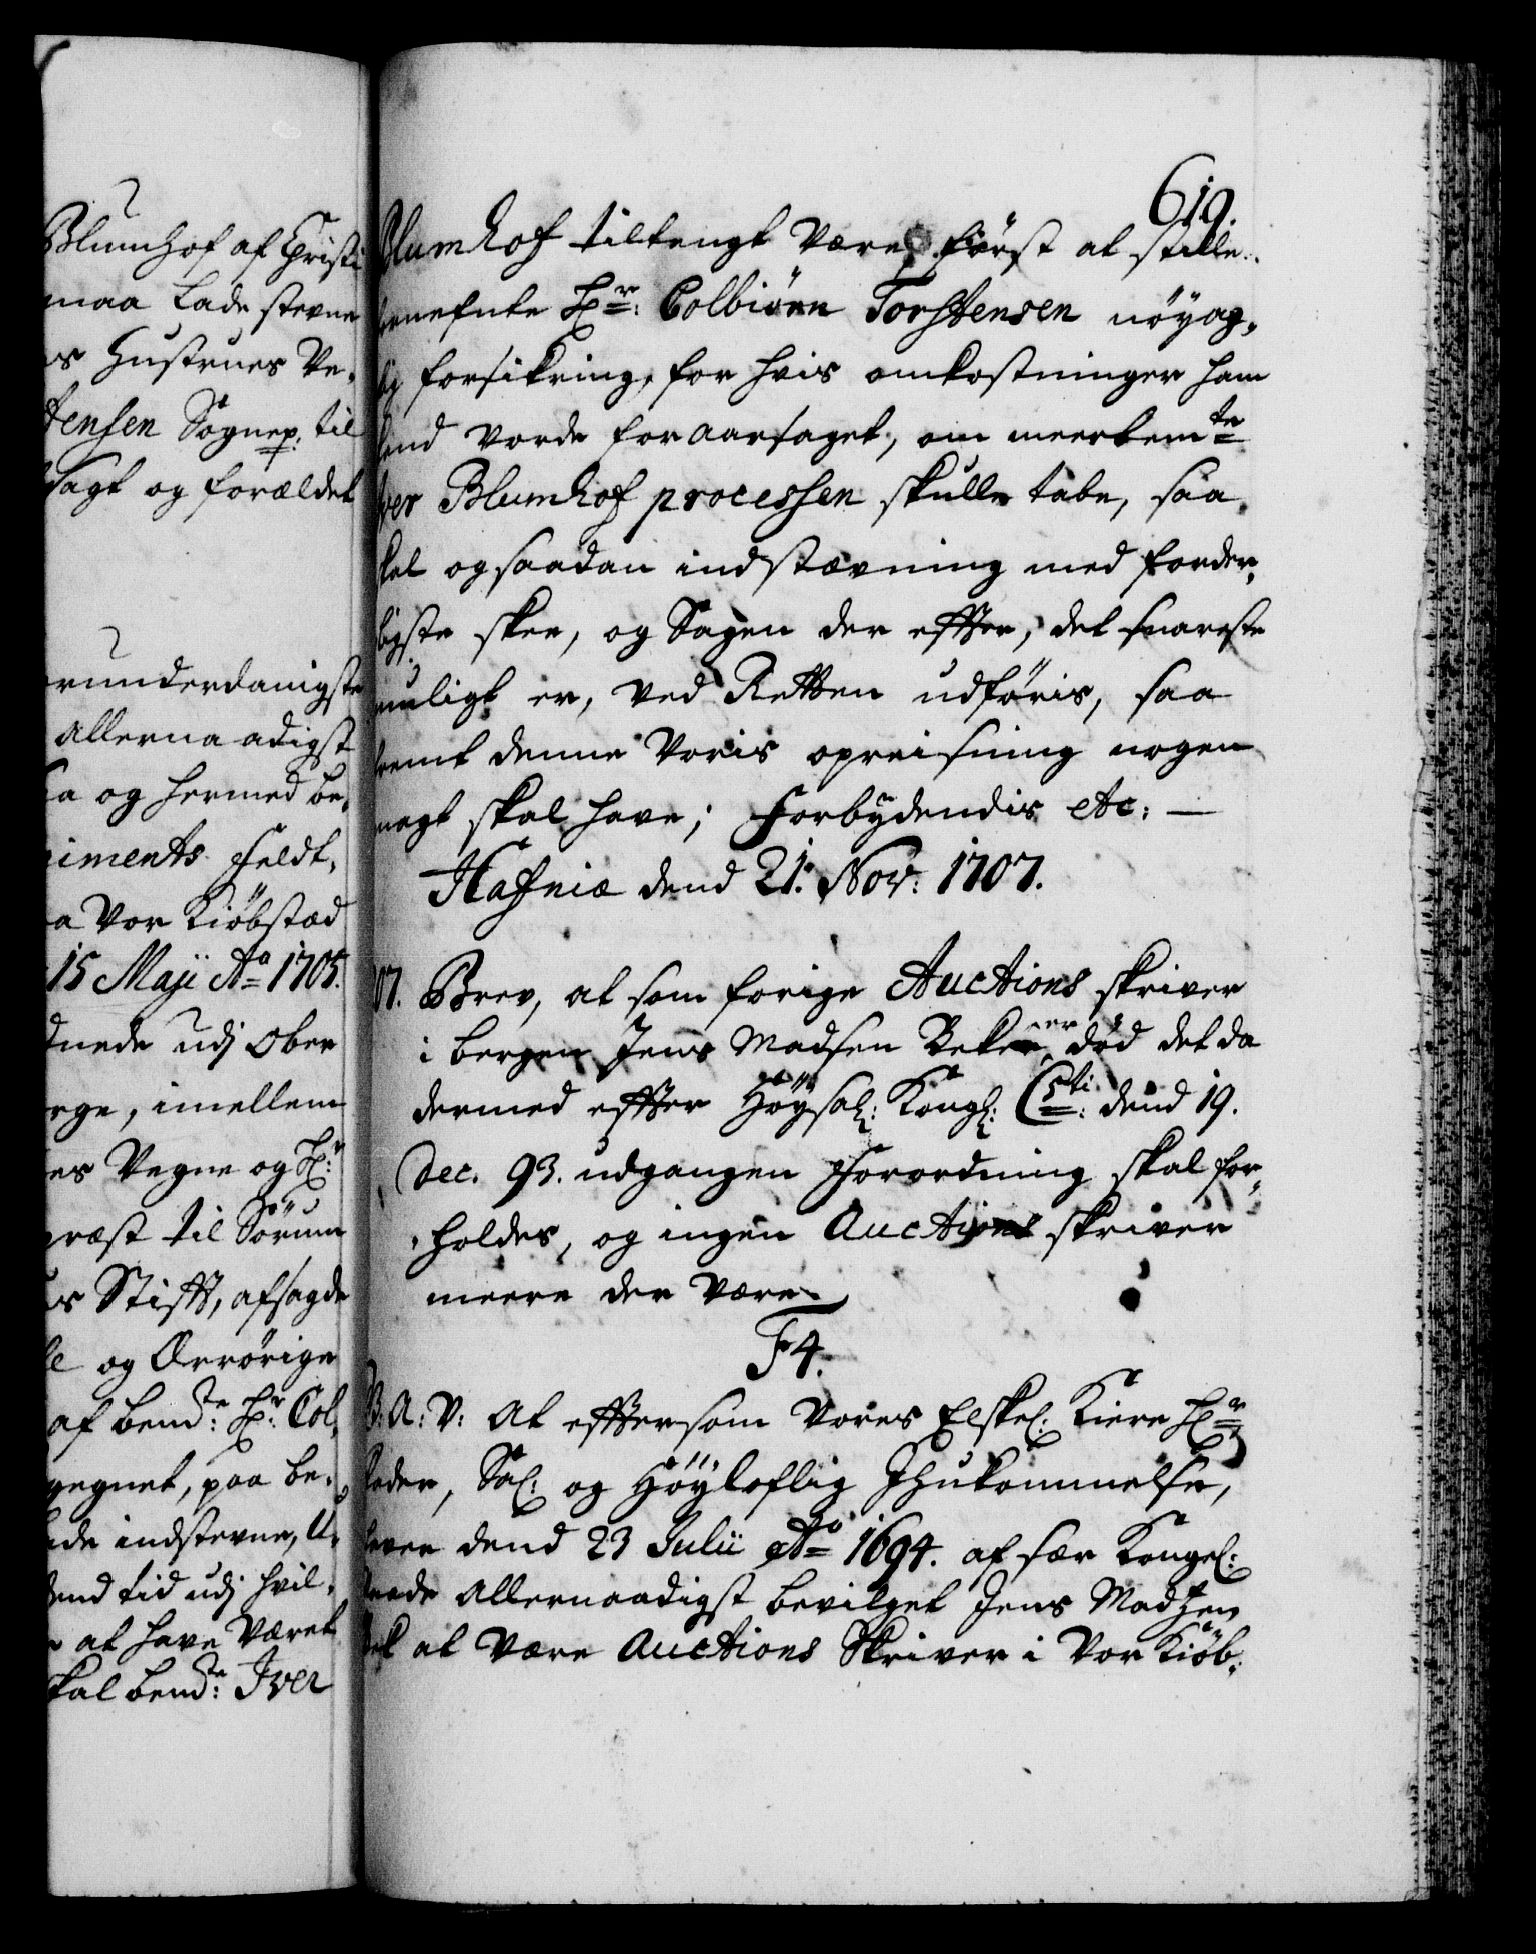 Blumhof af Christi
maa lade stevne
Hustrues Ve-
tensen Sognep: til
sagt og forældet
underdanigste
allernaadigst
og hermed be-
iments Feldt-
Vor Kiöbstæd
15 Maji Ao 1705.
udj Ober
imellem
es Vegne og Hr:
præst til Sörum
Stifft, afsagde
og Ærrörige
af bemte: Hr: Col-
gegnet, paa be-
indstevne, U-
tid udj hvil-
at have Været
skal bemte: Iver
619.
Blumhof tiltengt Være, först at stille
Hr: Colbiörn Torstensen nöyag-
lig forsikring, for hvis omkostninger ham
kand vorde foraarsaget, om meerbemte
Iver Blumhof processen skulle tabe, saa
skal og saadan indstævning med forder-
ligste skee, og Sagen der effter, det snareste
muligt er, ved Retten udföris, saa
fremt denne Voris opreisning nogen
magt skal have; Forbydendis etc: —
Hafniæ dend 21. Nov: 1707.
07. Brev, at som forige Auctions skriver
i bergen Jens Madsen Beken er död det da
dermed effter Höysal: Kongl: C5ti: dend 19.
Dec. 93. udgangen Forordning skal for-
holdes, og ingen Auctions skriver
meere der være
F4.
G: A: V: At eftersom Vores Elskel: Kiere Hr
Fader, Sal: og Höyloflig Ihukommelse,
haver dend 23 Julii Ao 1694. af sær Kongel:
Naade allernaadigst bevilget Jens Madzen
Bek at Være Auctions Skriver i Vor Kiöb-